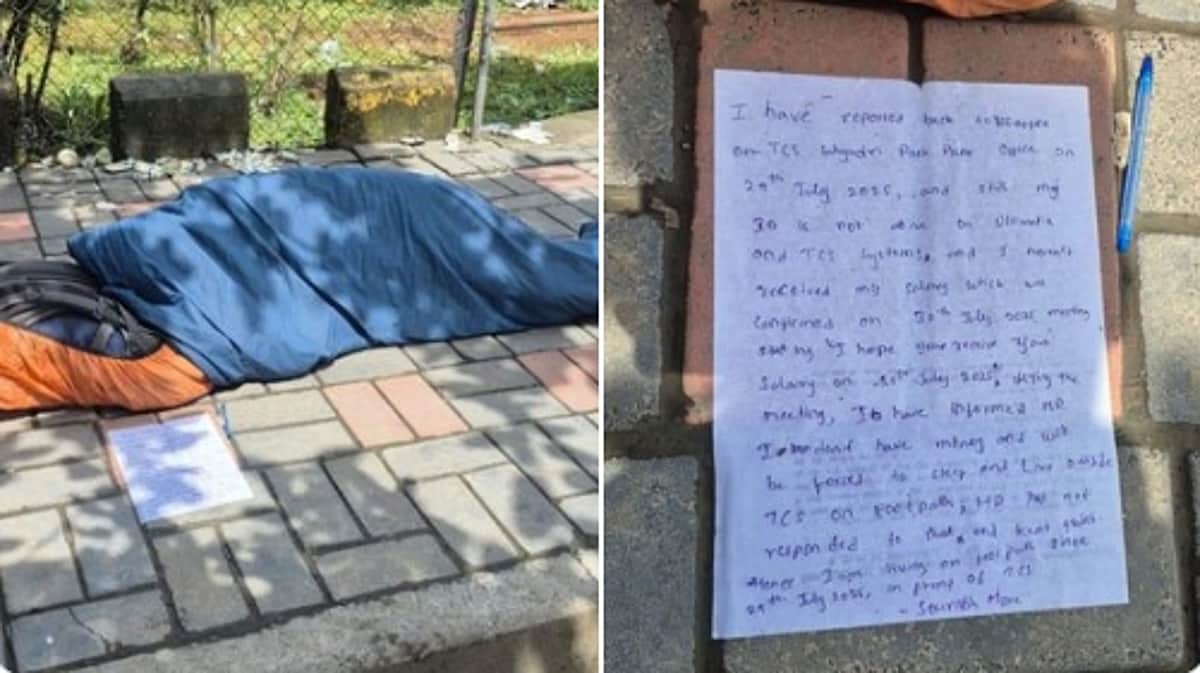 I have reported back
TCS Sahyadri Park Pune Office on
29th July 2025, and still my
ID is not active on Ultimatix
and TCS systems, and I haven't
received my salary which was
confirmed on 30th July 2025 meeting
"I hope receive your
salary on July 2025", during the
meeting, I have informed HR
I have money and will
be forced to sleep and live outside
TCS on footpath, HR has not
responded to that, and kept quiet.
Hence I am living on footpath since
29th July 2025, in front of TCS
- Saurabh More